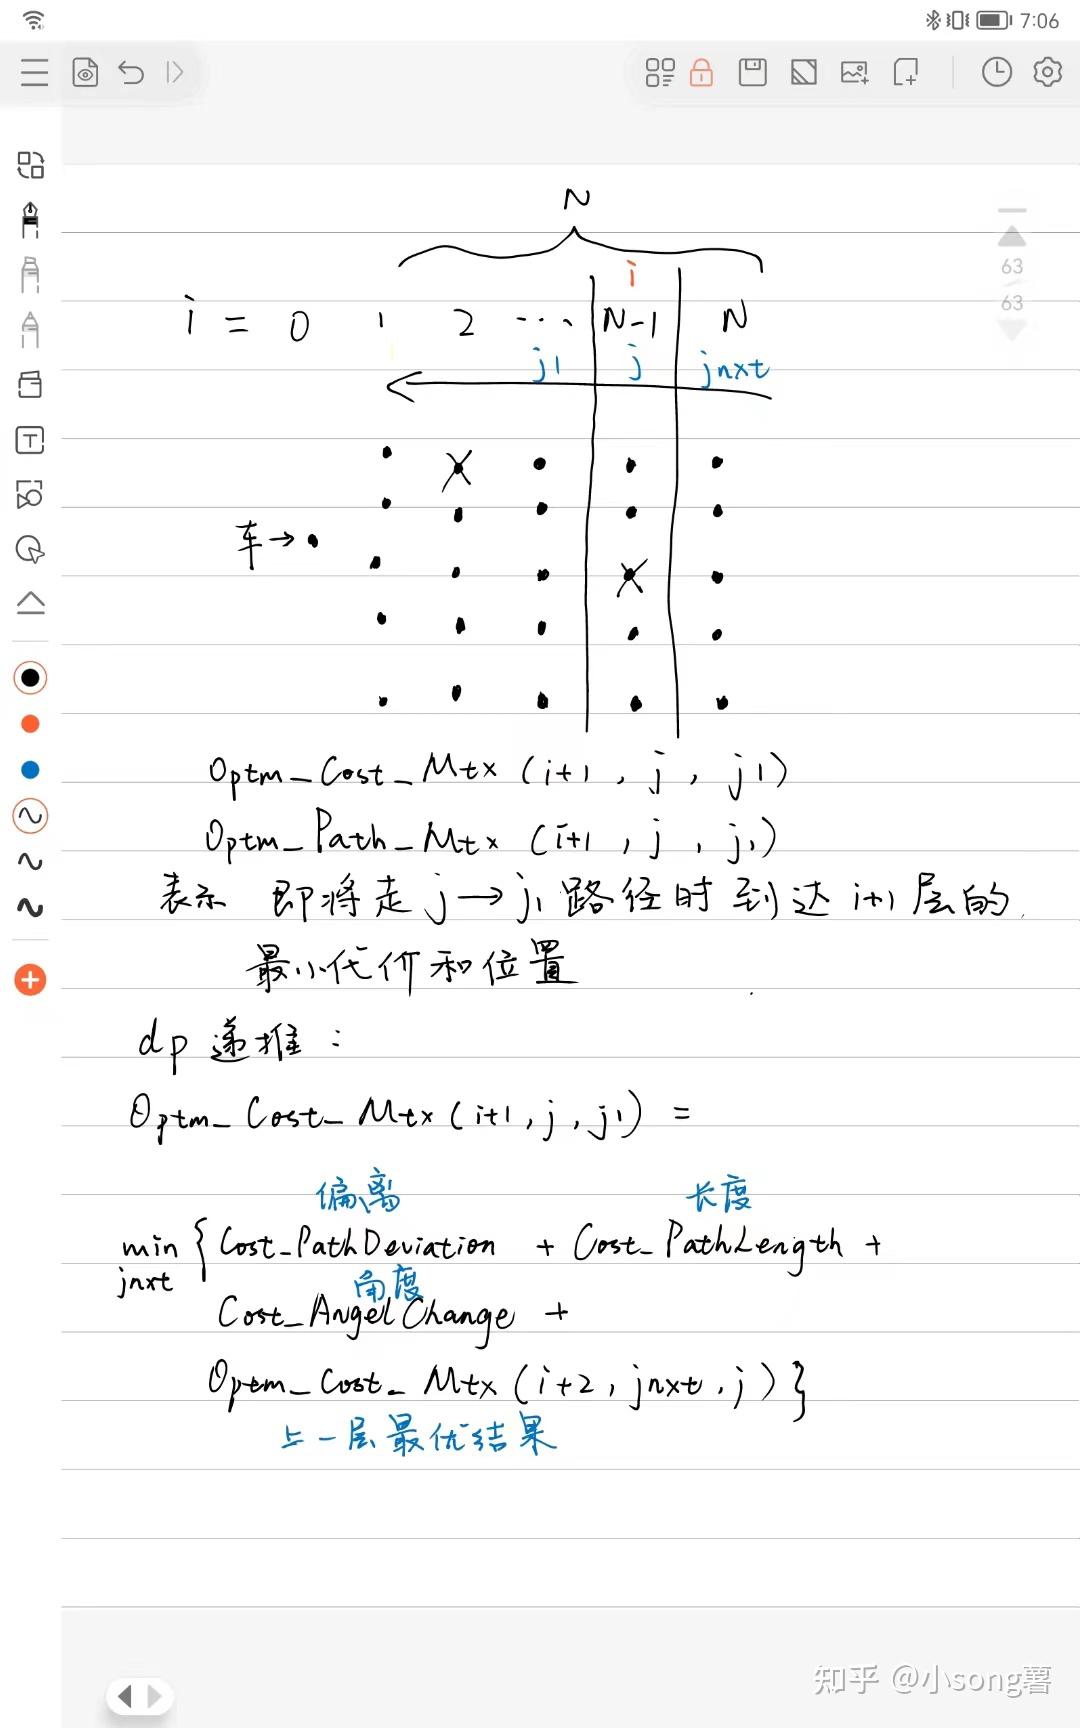 7:06
N
i
63
i = 0 1 2 ... N-1 N
63
j1 j jnxt
车→
Optm_Cost_Mtx (i+1, j, j1)
Optm_Path_Mtx (i+1, j, j1)
表示 即将走 j→j1 路径时到达 i+1 层的
最小代价和位置
dp 递推:
Optm_Cost_Mtx (i+1, j, j1) =
偏离 长度
min { Cost_PathDeviation + Cost_PathLength +
jnxt
角度
Cost_AngelChange +
Optm_Cost_Mtx (i+2, jnxt, j) }
上一层最优结果
知乎 @小song薯